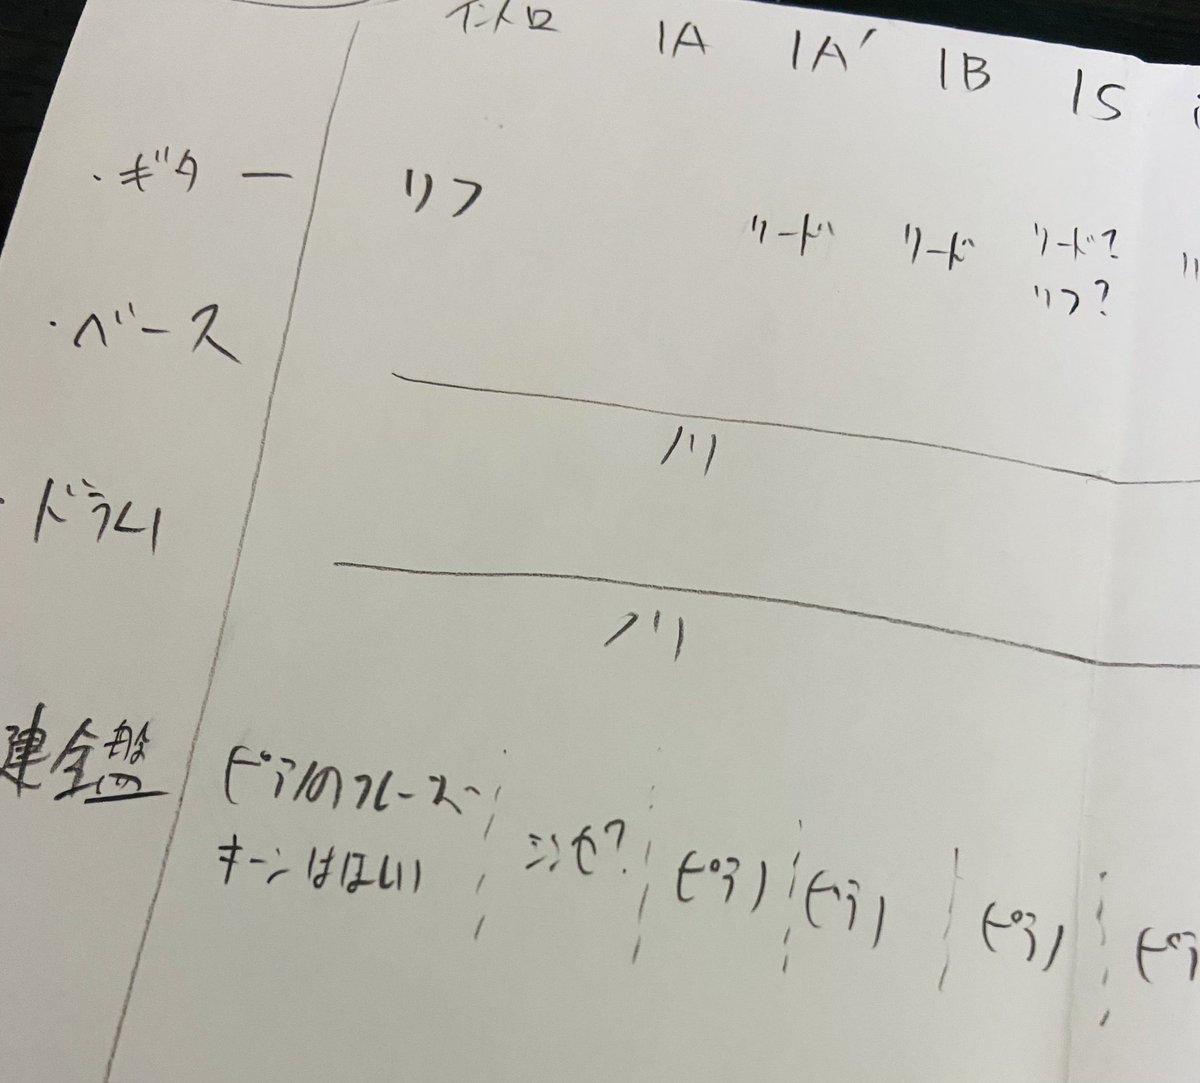 イントロ 1A 1A' 1B 1S
・ギター リフ リード リード リード?
リフ?
・ベース
ノリ
・ドラム
ノリ
ピアノのフレーズ
キーンはほしい
シンセ? ピアノ ピアノ ピアノ